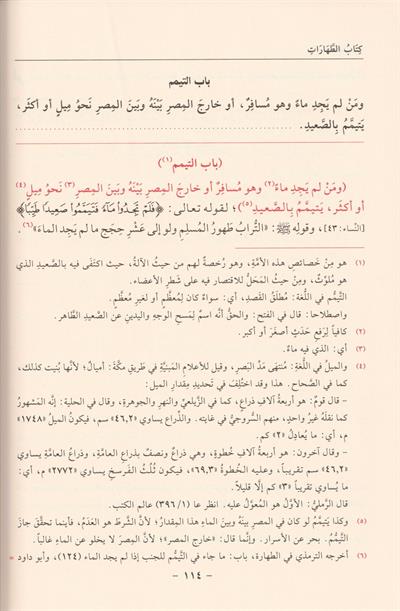 كِتَابُ الطَّهَارَاتِ
باب التيمم
ومَنْ لم يَجِدِ ماءً وهو مُسافِرٌ، أو خارجَ المِصرِ بَيْنَهُ وبَينَ المِصرِ نَحوُ مِيلٍ أو أكثَر،
يَتيمَّمُ بِالصَّعيدِ.
(باب التيمم(١))
(ومَنْ لم يَجِدِ ماءً(٢) وهو مُسافِرٌ أو خارِجَ المِصرِ بَيْنَهُ وبَينَ المِصرِ(٣) نَحوُ مِيلٍ(٤)
أو أكثَر، يَتيمَّمُ بِالصَّعيدِ(٥))؛ لقوله تعالى: ﴿فَلَمْ تَجِدُوا مَاءً فَتَيَمَّمُوا صَعِيدًا طَيِّبًا﴾
[النِّساء: ٤٣]، وقولِهِ ﷺ: «التُّرابُ طَهورُ المُسلِمِ ولو إلى عَشْرِ حِجَجٍ ما لم يَجِد الماءَ»(٦).
(١) هو مِنْ خَصائصِ هذه الأمَّةِ، وهو رُخصةٌ لهم من حيثُ الآلَة، حيث اكتَفَى فيه بالصَّعيدِ الذي
هو مُلوِّثٌ، ومِنْ حيثُ المَحَلُّ للاقتصارِ فيه على شَطرِ الأعضاء.
التيمُّم في اللُّغة: مُطلَقُ القَصدِ، أي: سواءٌ كان لِمُعظَّمٍ أو لغيرِ مُعظَّمٍ.
واصطلاحًا: قال في الفتح: والحقُّ أنَّه اسمٌ لِمَسحِ الوجهِ واليدينِ عن الصَّعيدِ الطَّاهر.
(٢) كافيًا لِرَفعِ حَدَثٍ أصغَرَ أو أكبر.
(٣) أي: الذي فيه ماءٌ.
(٤) والميلُ في اللُّغةِ: مُنتهَى مَدِّ البَصرِ، وقيل للأعلامِ المَبنيَّةِ في طَريقِ مكَّةَ: أميالٌ؛ لأنَّها بُنِيَت كذلك،
كما في الصِّحاح. هذا وقد اختُلِفَ في تَحديدِ مِقدارِ المِيل:
- قال قومٌ: هو أربعةُ آلافِ ذراعٍ، كما في الزَّيلعيِّ والنهرِ والجوهرة، وقال في الحلية: إنَّه المَشهورُ
كما نقلَهُ غيرُ واحدٍ، منهم السَّروجيُّ في غايتِه. والذِّراع يساوي «٤٦,٢» سم، فيكون المِيلُ «١٧٤٨»
م، أي: ما يُعادِلُ «٢» كم.
- وقال آخرون: هو أربعةُ آلافِ خُطوةٍ، وهي ذراعٌ ونصفٌ بذراعِ العامَّةِ، وذراعُ العامَّةِ يساوي
«٤٦,٢» سم تقريبًا، وعليه الخُطوةُ «٦٩,٣»، فيكون ثُلُثُ الفَرسخِ يساوي «٢٧٧٢» م، أي:
ما يُساوي تقريبًا «٣» كم إلَّا قليلًا.
قال الرَّمليُّ: الأوَّلُ هو المُعوَّلُ عليه. انظر عا (٣٩٦/١) عالم الكتب.
(٥) وكذا يَتيمَّمُ لو كان في المصرِ بينَهُ وبينَ الماءِ هذا المِقدارُ؛ لأنَّ الشَّرطَ هو العَدَمُ، فأينما تحقَّقَ جازَ
التَّيمُّمُ. بحر عن الأسرار. وإنَّما قال: «خارجَ المصر»؛ لأنَّ المصرَ لا يخلو عن الماءِ غالبًا.
(٦) أخرجه الترمذي في الطهارة، باب: ما جاء في التَّيمُّم للجنب إذا لم يجد الماء (١٢٤)، وأبو داود =
- ١١٤ -